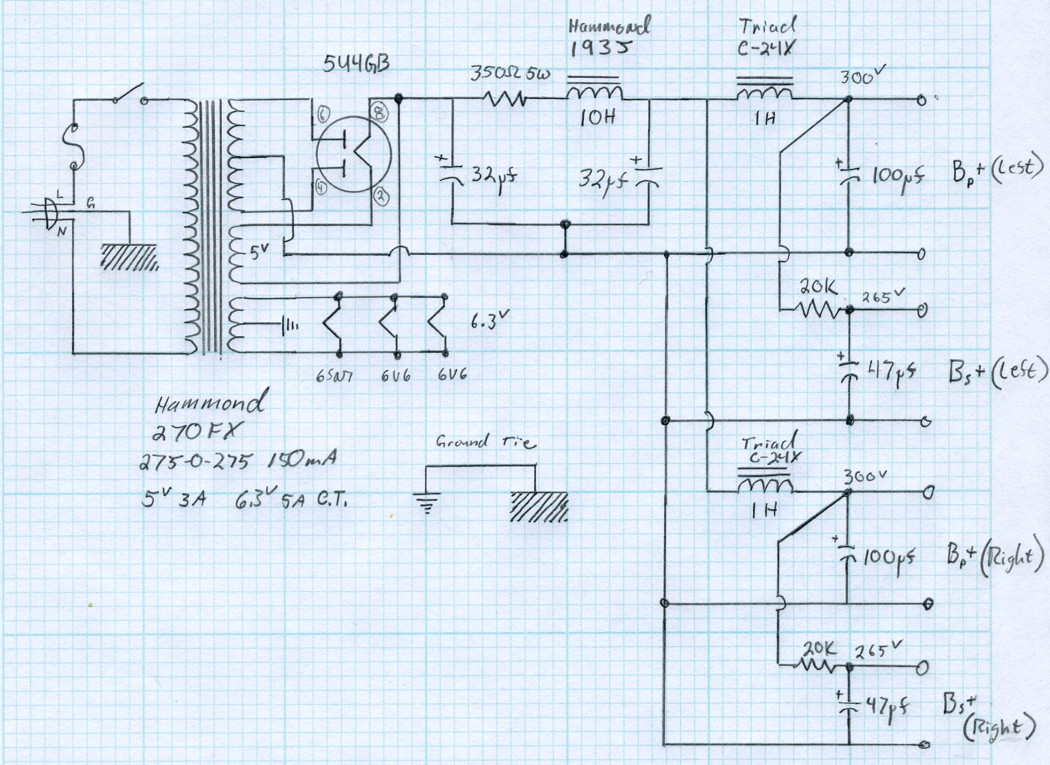 Hammond
193J
Triad
C-24X
5U4GB
350Ω 5W
300V
10H
1H
6
8
4
2
32µf
32µf
100µf
Bp+ (Left)
L
G
N
5V
20K
265V
6.3V
47µf
Bs+ (Left)
6SN7
6V6
6V6
Hammond
270FX
275-0-275 150mA
5V 3A 6.3V 5A C.T.
Ground Tie
Triad
C-24X
300V
1H
100µf
Bp+ (Right)
20K
265V
47µf
Bs+
(Right)